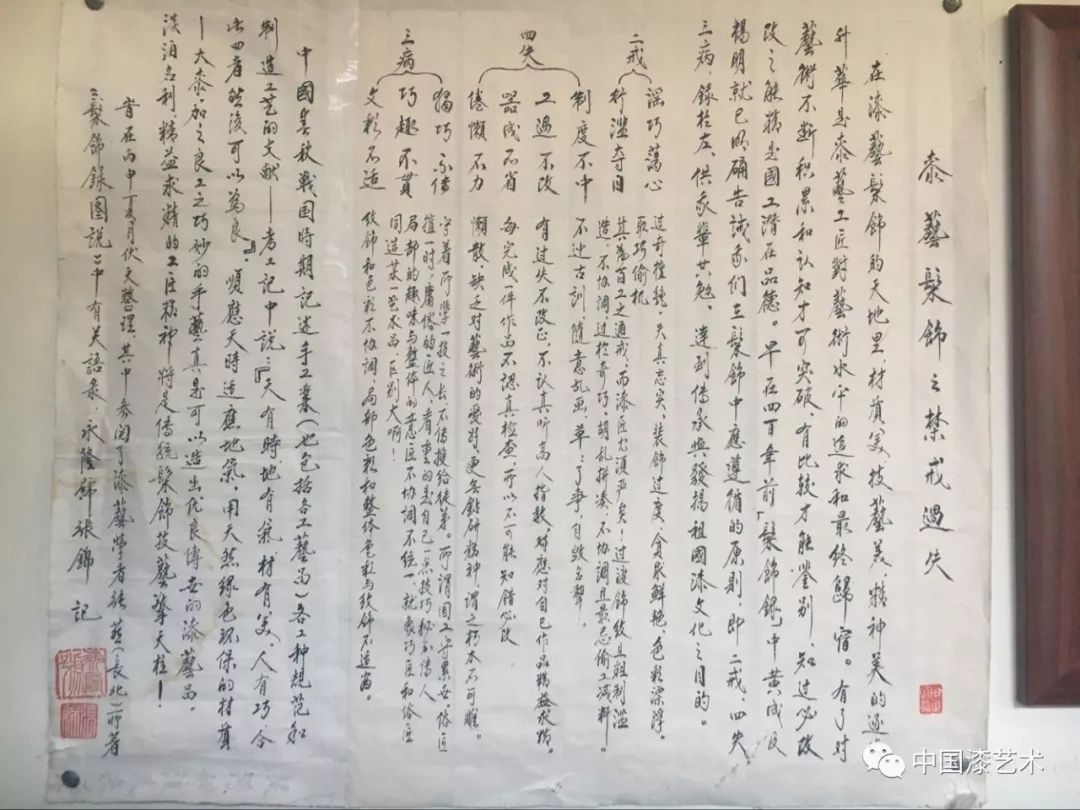 泰藝髹飾之禁戒過失
在漆藝髹飾的天地里，材質美、技藝美、精神美的逐
升華是泰藝工匠對藝術水平的追求和最終歸宿。有了對
藝術不断积累和认知才可突破，有比较才能鉴别，知过必改
改之能精是國工潜在品德。早在四百年前「髹飾錄」中黄成及
楊明就已明确告诫我们在髹飾中應遵循的原則，即二戒、四失
三病，錄於左，供我輩共勉，達到傳承與發揚祖國漆文化之目的。
二戒
淫巧蕩心 过奇擅艷，失真忘实，装飾过度，貪求鮮艳，色彩漂浮。取巧偷机
行滥夺目 其為百工之通戒，而漆匠尤須严矣！过渡飾纹且粗制滥
造，不协调过於奇巧，胡乱拼凑，不协調且最忌偷工减料。
四失
制度不中 不达古訓随意乱画，草草了事，自毁名聲。
工過不改 有过失不改正，不认真听高人指教，对應对自已作品精益求精。
器成不省 每完成一件作品不認真检查，所以不可能知错必改
倦懒不力 懒散、缺乏对藝術的爱好，更無鉆研精神，谓之朽木不可雕。
三病
獨巧不傳 守着所學一技之长不傳授给徒弟。而谓国工守累世，俗匠
擅一时，庸俗的匠人，看重的是自己一点技巧秘不傳人
巧趣不貫 局部的趣味与整体的立意不协調不统一，就象巧匠和俗匠
同造某一艺术品，区别大啊！
文彩不适 纹飾和色彩不协調，局部色彩和整体色彩与纹飾不适當。
中國春秋戰国時期記述手工業（也包括各工藝品）各工种規范和
制造工艺的文献——考工记中说：『天有時，地有氣，材有美，人有巧，合
此四者然後可以為良』顺應天時适應地氣，用天然绿色环保的材質
——大泰，加之良工之巧妙的手藝真是可以造出优良傳世的漆藝品。
淡泊名利，精益求精的工匠精神将是傳統髹飾技藝擎天柱！
旹在丙申夏月伏天整理，其中参阅了漆藝學者张燕（長北）所著
《髹飾錄图説》中有关語录。永隆號張錦記
中国漆艺术